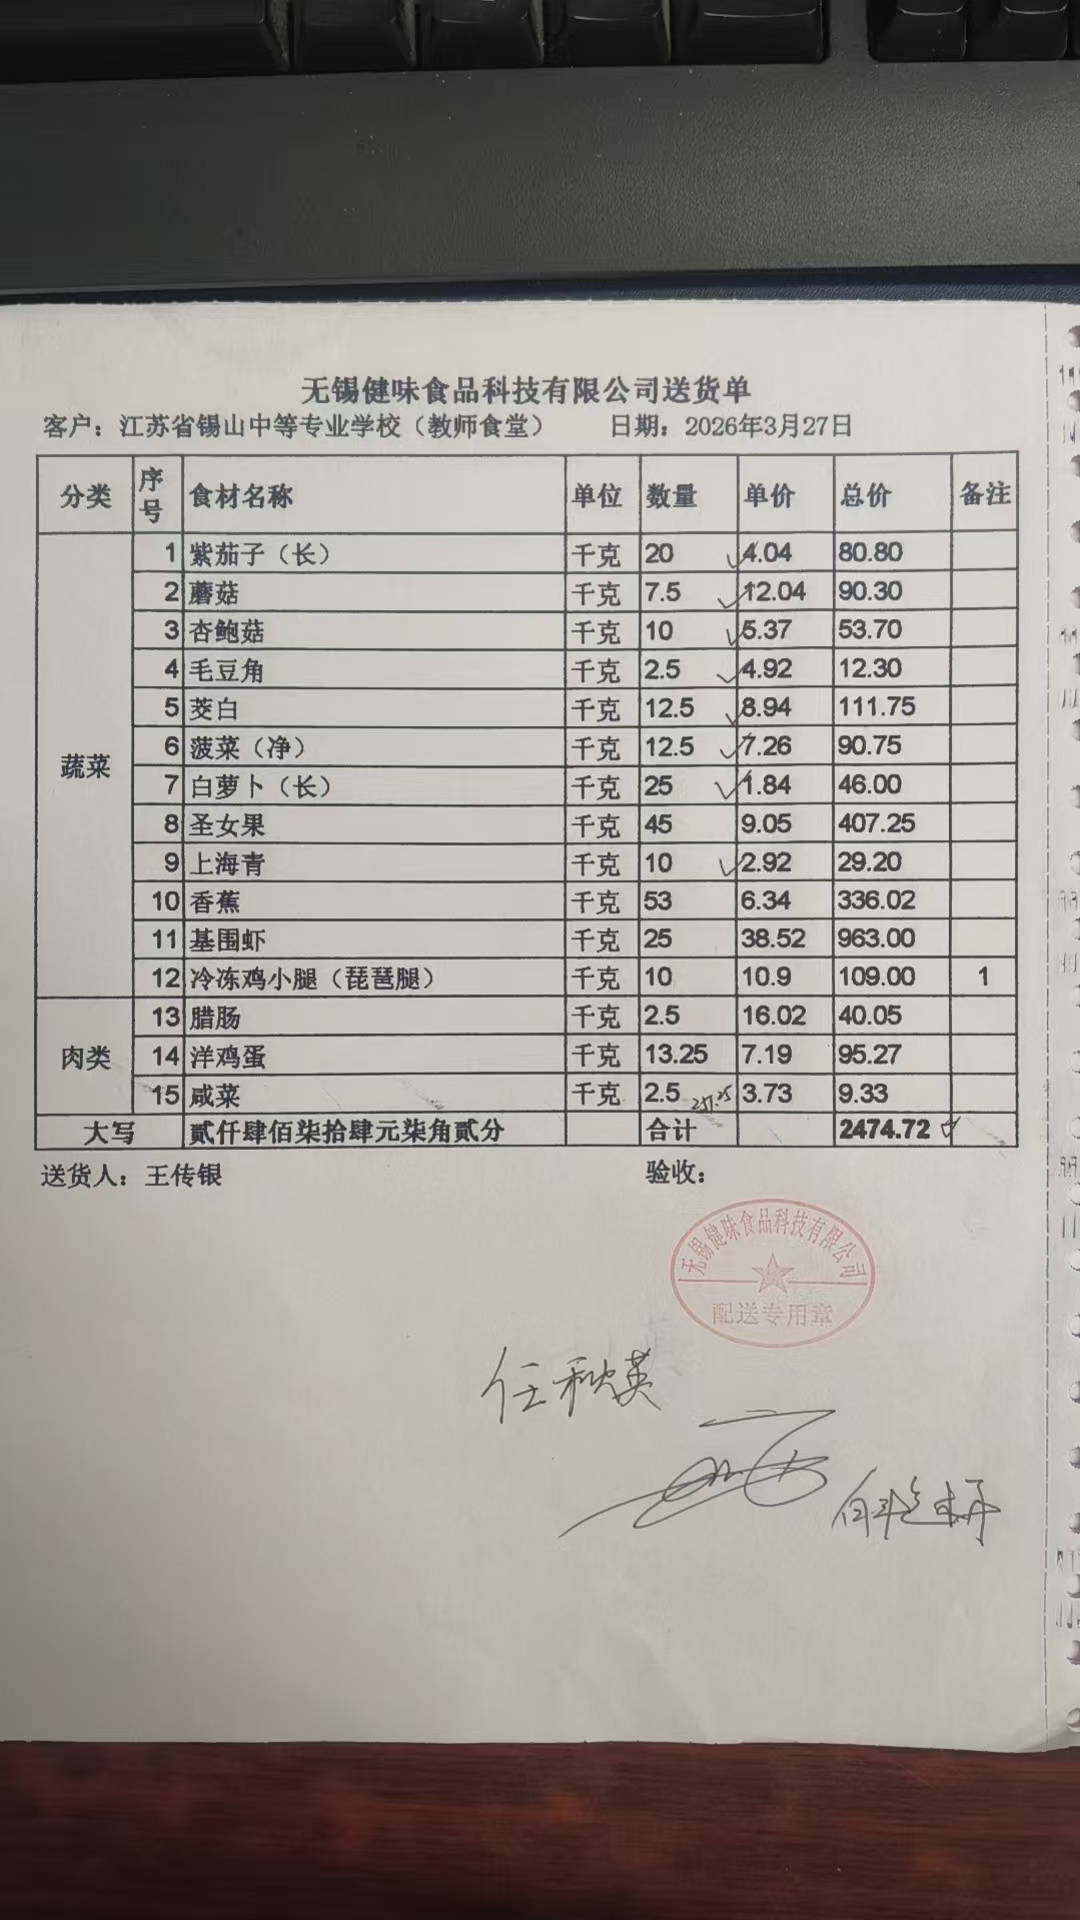 无锡健味食品科技有限公司送货单
客户：江苏省锡山中等专业学校（教师食堂） 日期：2026年3月27日
分类 序号 食材名称 单位 数量 单价 总价 备注
蔬菜
1 紫茄子（长） 千克 20 ✓4.04 80.80
2 蘑菇 千克 7.5 ✓12.04 90.30
3 杏鲍菇 千克 10 ✓5.37 53.70
4 毛豆角 千克 2.5 ✓4.92 12.30
5 茭白 千克 12.5 ✓8.94 111.75
6 菠菜（净） 千克 12.5 ✓7.26 90.75
7 白萝卜（长） 千克 25 ✓1.84 46.00
8 圣女果 千克 45 9.05 407.25
9 上海青 千克 10 ✓2.92 29.20
10 香蕉 千克 53 6.34 336.02
11 基围虾 千克 25 38.52 963.00
12 冷冻鸡小腿（琵琶腿） 千克 10 10.9 109.00 1
肉类
13 腊肠 千克 2.5 16.02 40.05
14 洋鸡蛋 千克 13.25 7.19 95.27
15 咸菜 千克 2.5 251.25 3.73 9.33
大写 贰仟肆佰柒拾肆元柒角贰分 合计 2474.72
送货人：王传银 验收：
无锡健味食品科技有限公司
配送专用章
任秋英